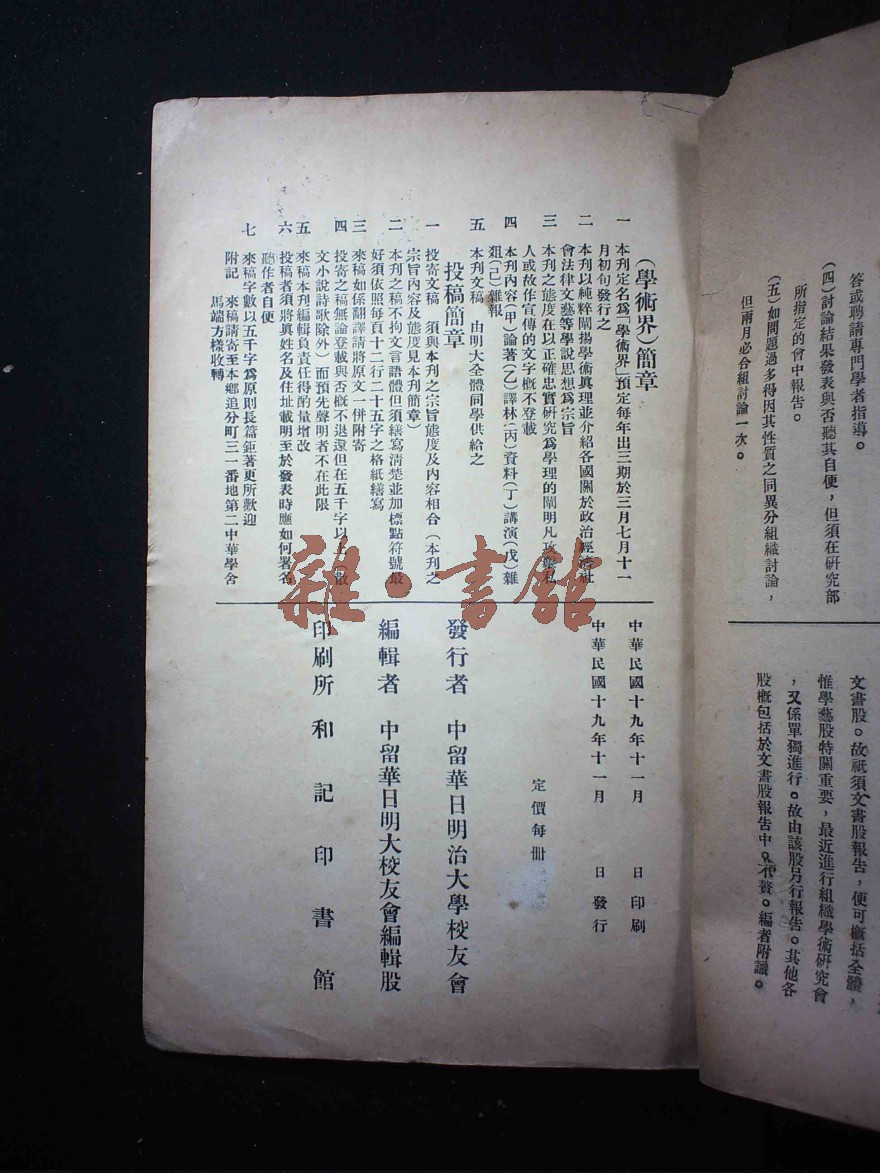 答或聘請專門學者指導。
(四)討論結果發表與否聽其自便，但須在研究部
所指定的會中報告。
(五)如問題過多得因其性質之同異分組織討論，
但兩月必合組討論一次。
文書股。故祇須文書股報告，便可概括全體，
惟學藝股特關重要，最近進行組織學術研究會
，又係單獨進行。故由該股另行報告。其他各
股概包括於文書股報告中。不贅。編者附識。
(學術界)簡章
一 本刊定名爲「學術界」預定每年出三期於三月七月十一
月初旬發行之
二 本刊以純粹闡揚學術眞理並介紹各國關於政治經濟社
會法律文藝等學說思想爲宗旨
三 本刊之態度在以正確忠實研究爲學理的闡明凡政黨私
人或故作宣傳的文字概不登載
四 本刊內容(甲)論著(乙)譯林(丙)資料(丁)講演(戊)雜
爼(己)雜報
五 本刊文稿 由明大全體同學供給之
投稿簡章
一 投寄文稿 須與本刊之宗旨態度及內容相合(本刊之
宗旨內容及態度見本刊簡章)
二 本刊之稿不拘文言語體但須繕寫淸楚並加標點符號最
好須依照每頁十二行二十五字之格紙繕寫
三 來稿如係翻譯請將原文一併附寄
四 投寄之稿無論登載與否概不退還但在五千字以上(散
文小說詩歌除外)而預先聲明者不在此限
五 來稿本刊編輯負責任得酌量增改
六 投稿者須將眞姓名及住址載明至於發表時應如何署名
聽作者自便
七 來稿字數以五千字爲原則長篇鉅著更所歡迎
附記 來稿請寄至本鄉追分町三一番地第二中華學舍
馬端方樣收轉
中華民國十九年十一月 日印刷
中華民國十九年十一月 日發行
定價每冊
發行者 中留華日明治大學校友會
編輯者 中留華日明大校友會編輯股
印刷所 和記印書館
雜·書館